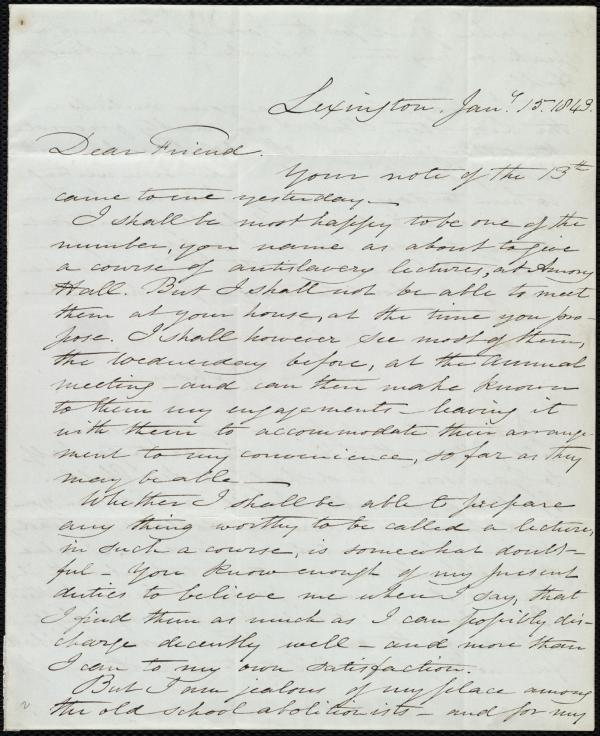 Lexington, Jany 15. 1843.
Dear Friend.
Your note of the 13th
came to me yesterday.—
I shall be most happy to be one of the
number, you name as about to give
a course of antislavery lectures, at Amory
Hall. But I shall not be able to meet
them at your house, at the time you pro-
pose. I shall however see most of them,
the Wednesday before, at the Annual
meeting — and can then make known
to them my engagements — leaving it
with them to accommodate their arrange-
ment to my convenience, so far as they
may be able —
Whether I shall be able to prepare
any thing worthy to be called a lecture,
in such a course, is somewhat doubt-
ful — You know enough of my present
duties to believe me when I say, that
I find them as much as I can possibly dis-
charge decently well — and more than
I can to my own satisfaction.
But I am jealous of my place among
the old school abolitionists — and for my